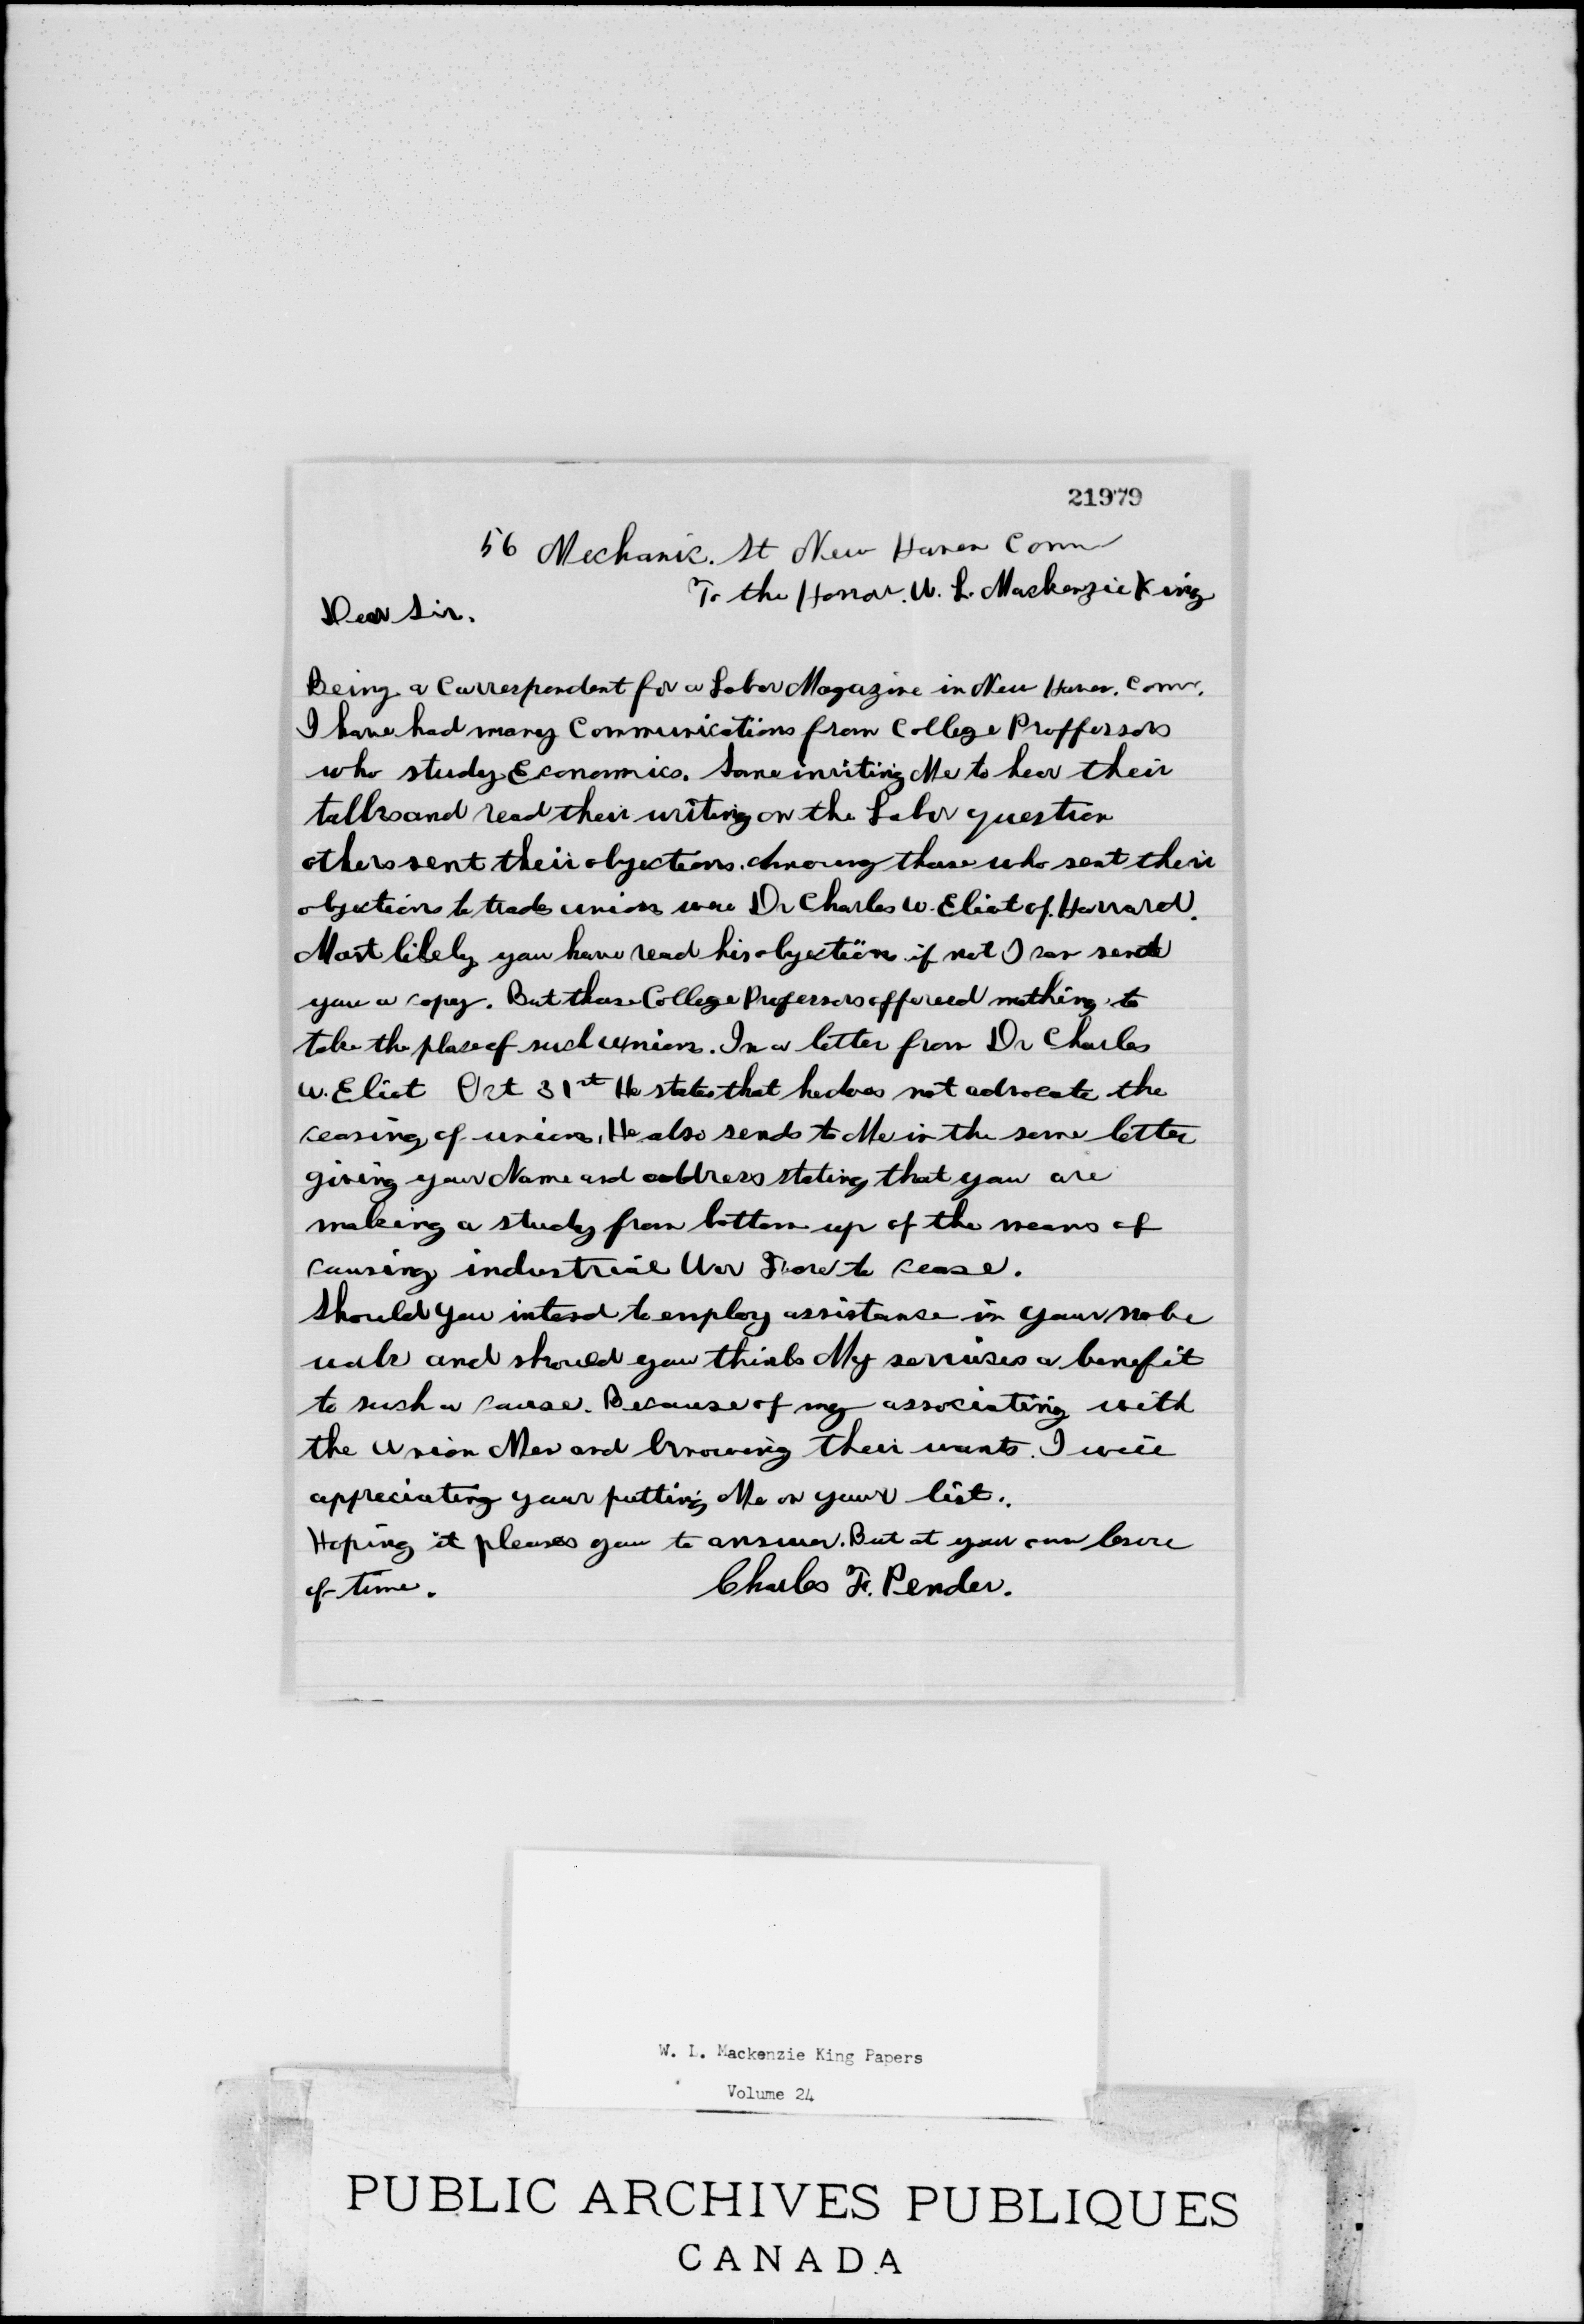 21979
56 Mechanic. St New Haven Conn
To the Honor. W. L. Mackenzie King
Dear Sir.
Being a Correspondent for a Labor Magazine in New Haven. Conn.
I have had many Communications from College Proffessors
who study Economics. Some inviting Me to hear their
talks and read their writing on the Labor question
others sent their objections. Among those who sent their
objections to trade unions were Dr Charles W. Eliot of. Harvard.
Most likely you have read his objections if not I can send
you a copy. But those College Professors offered nothing to
take the place of such unions. In a letter from Dr Charles
W. Eliot Oct 31st He states that he does not advocate the
ceasing of unions, He also sends to Me in the same letter
giving your Name and address stating that you are
making a study from bottom up of the means of
causing industrial War Fare to cease.
Should you intend to employ assistance in your noble
walk and should you think My services a benefit
to such a cause. Because of my associating with
the Union Men and knowing their wants. I will
appreciating your putting Me on your list.
Hoping it pleases you to answer. But at your own lesure
of time. Charles F. Pender.
W. L. Mackenzie King Papers
Volume 24
PUBLIC ARCHIVES PUBLIQUES
CANADA